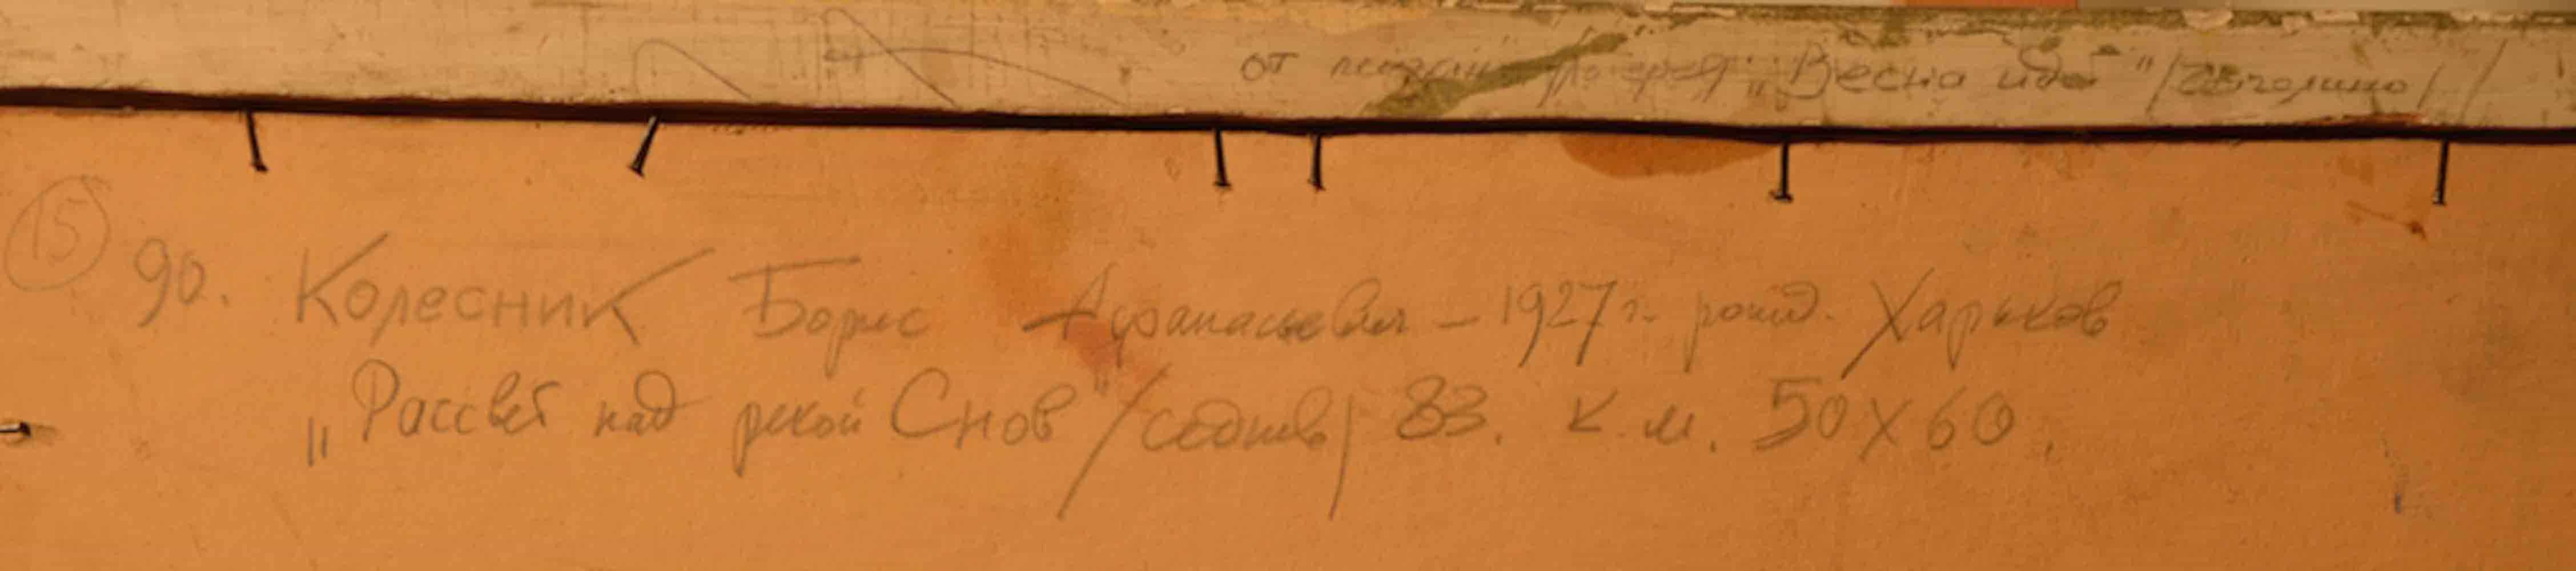 от "Весна идёт"
15
90. Колесник Борис Афанасьевич – 1927 г. рожд. Харьков
„Рассвет над рекой Снов" /Седнев/ 83. к.м. 50х60.